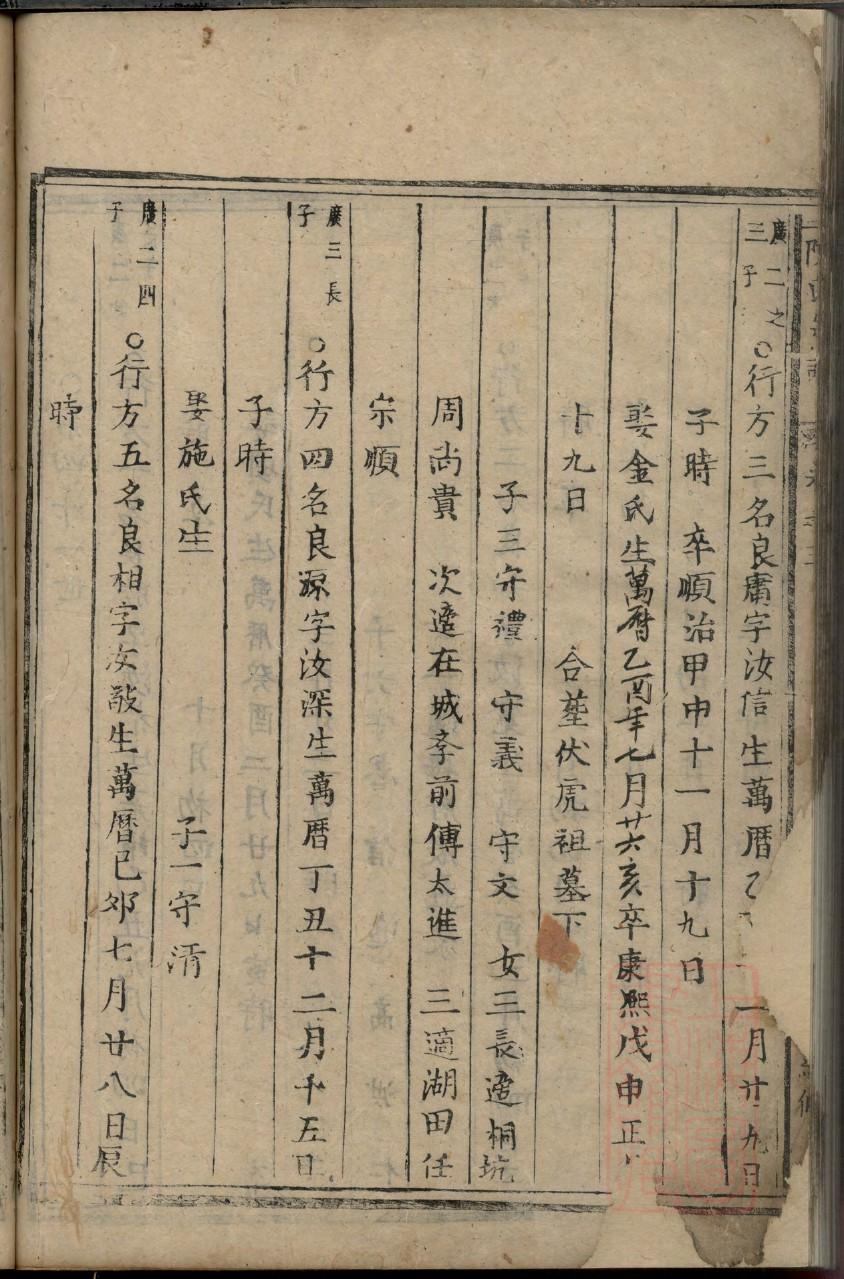 廣二之
三子
○行方三名良庸字汝信生萬曆乙 一月廿九日
子時 卒順治甲申十一月十九日
娶金氏生萬曆乙酉年七月廿六亥卒康熙戊申正
十九日 合塟伏虎祖墓下
子三守禮 守義 守文 女三長適桐坑
周尚貴 次適在城李前傅太進 三適湖田任
宗順
廣三長
子
○行方四名良源字汝深生萬曆丁丑十二月十五日
子時
娶施氏生 子一守清
廣二四
子
○行方五名良相字汝敲生萬曆己卯七月廿八日辰
時